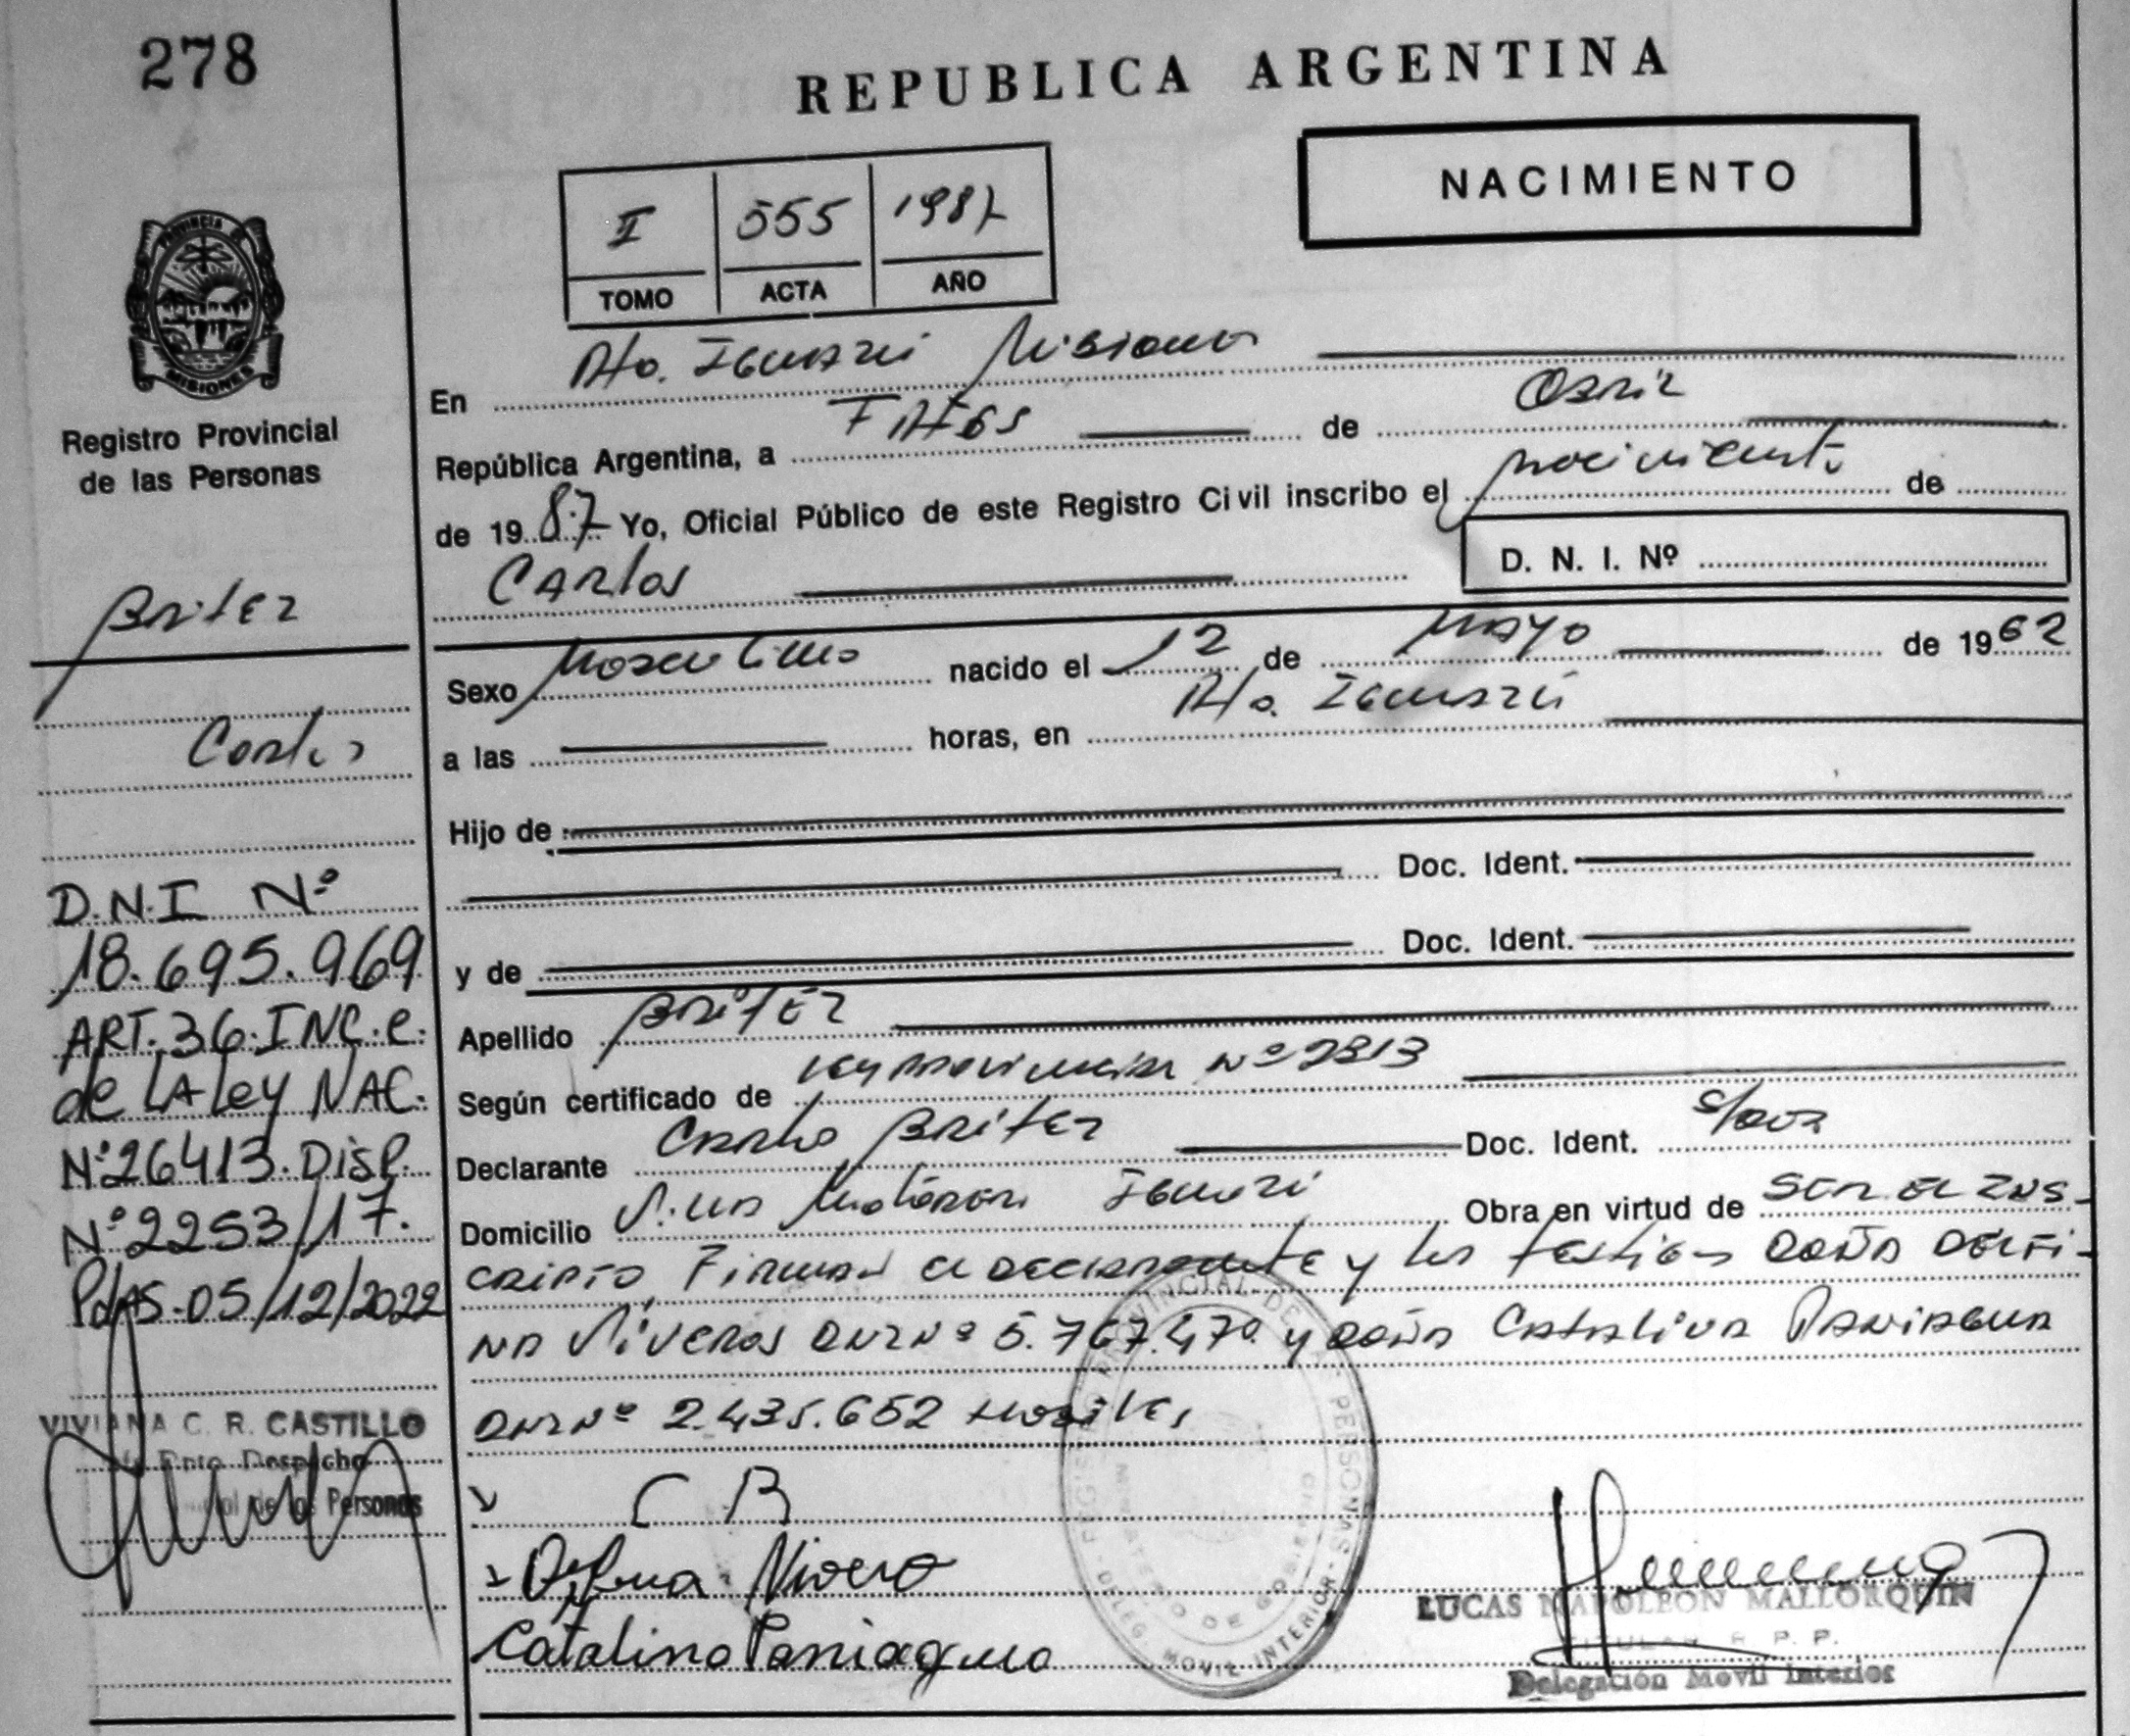 278
REPUBLICA ARGENTINA
NACIMIENTO
I 555 1987
TOMO ACTA AÑO
PROVINCIA DE
MISIONES
Registro Provincial
de las Personas
Britez
Carlos
D.N.I Nº
18.695.969
ART. 36. INC. c.
de LA Ley NAC.
Nº 26413. Disp.
Nº 2253/17.
Pdas. 05/12/2022
VIVIANA C. R. CASTILLO
Dpto. Despacho
de las Personas
En Pto. Iguazú Misiones
República Argentina, a TRES de Abril
de 1987 Yo, Oficial Público de este Registro Civil inscribo el nacimiento de
Carlos D. N. I. Nº
Sexo Masculino nacido el 12 de Mayo de 1962
a las horas, en Pto. Iguazú
Hijo de
Doc. Ident.
y de Doc. Ident.
Apellido Britez
Según certificado de Ley Provincial Nº 2313
Declarante Carlos Britez Doc. Ident. s/doc
Domicilio Iguazú Obra en virtud de ser el ins-
cripto, Firman el declarante y los testigos doña Delfi-
na Viveros DNI Nº 5.767.470 y doña Catalina Paniagua
DNI Nº 2.435.652
C B
Delfina Vivero
Catalina Paniagua
REGISTRO PROVINCIAL DE PERSONAS
MINISTERIO DE GOBIERNO
DELEG. MOVIL INTERIOR
LUCAS NAPOLEON MALLORQUIN
TITULAR R. P. P.
Delegación Movil Interior